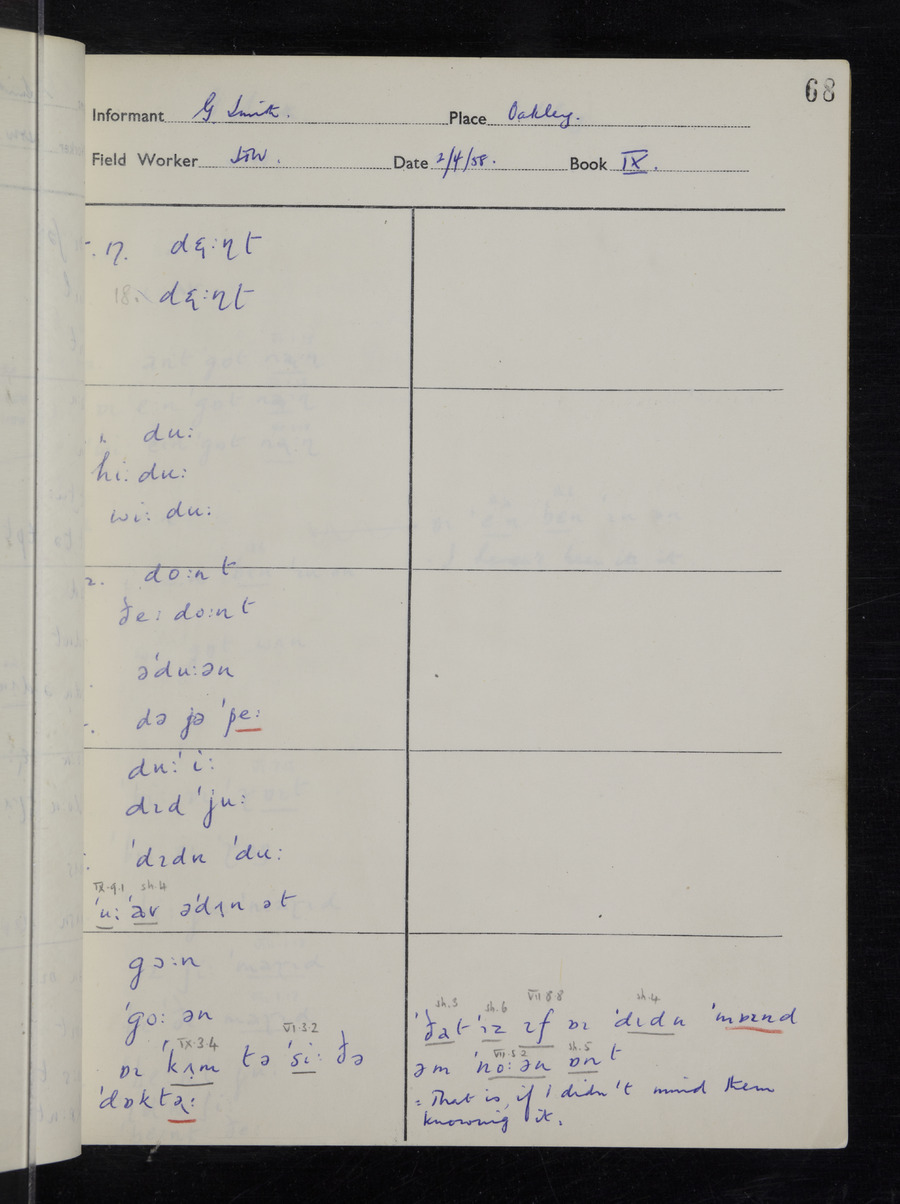 68
Informant G Smith. Place Oakley.
Field Worker Date 2/4/58. Book IX.
17. dɛ:ɳt
18. × dɛ:ɳt
du:
hi: du:
wi: du:
2. do:nt
ðe: do:nt
ə'du:ən
də jə 'pe:
du:' i:
dɪd 'ju:
'dɪdn 'du:
IX.9.1 sh.4
'u: 'av ə'dʌn ət
gɔ:n
'go: ən
IX.3.4 VI.3.2
ɒɪ 'kʌm tə 'si: ðə
'dɒktə:
sh.3 sh.6 VII.8.8 sh.4
'ðat 'ɪz ɪf ɒɪ 'dɪdn 'mɒɪnd
VII.5.2 sh.5
əm 'no:ən ɒnt
= That is, if I didn't mind them
knowing it.